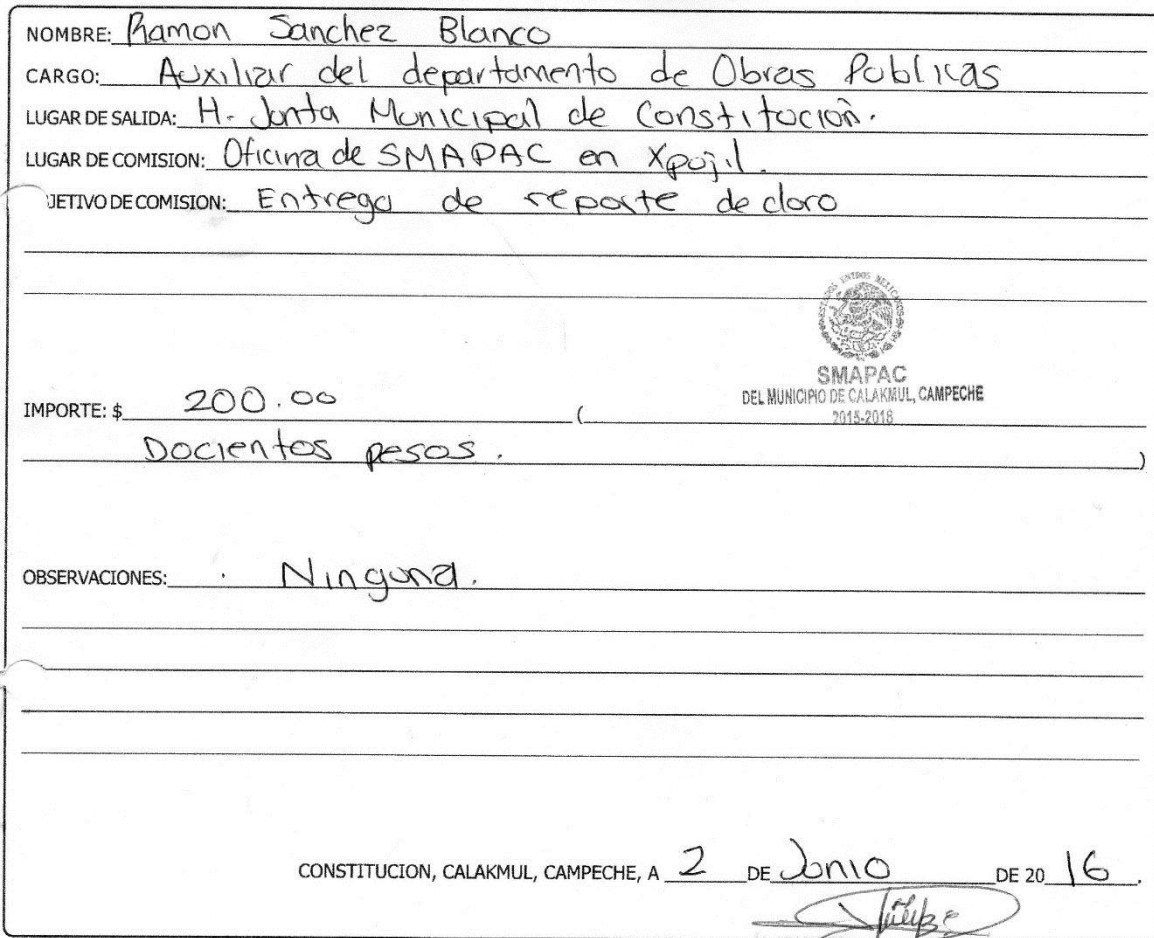 NOMBRE: Ramon Sanchez Blanco
CARGO: Auxiliar del departamento de Obras Publicas
LUGAR DE SALIDA: H. Junta Municipal de Constitución.
LUGAR DE COMISION: Oficina de SMAPAC en Xpujil.
JETIVO DE COMISION: Entrega de reporte de cloro
ESTADOS UNIDOS MEXICANOS
SMAPAC
DEL MUNICIPIO DE CALAKMUL, CAMPECHE
2015-2018
IMPORTE: $ 200.00 (
Docientos pesos. )
OBSERVACIONES: Ninguna.
CONSTITUCION, CALAKMUL, CAMPECHE, A 2 DE Junio DE 20 16.